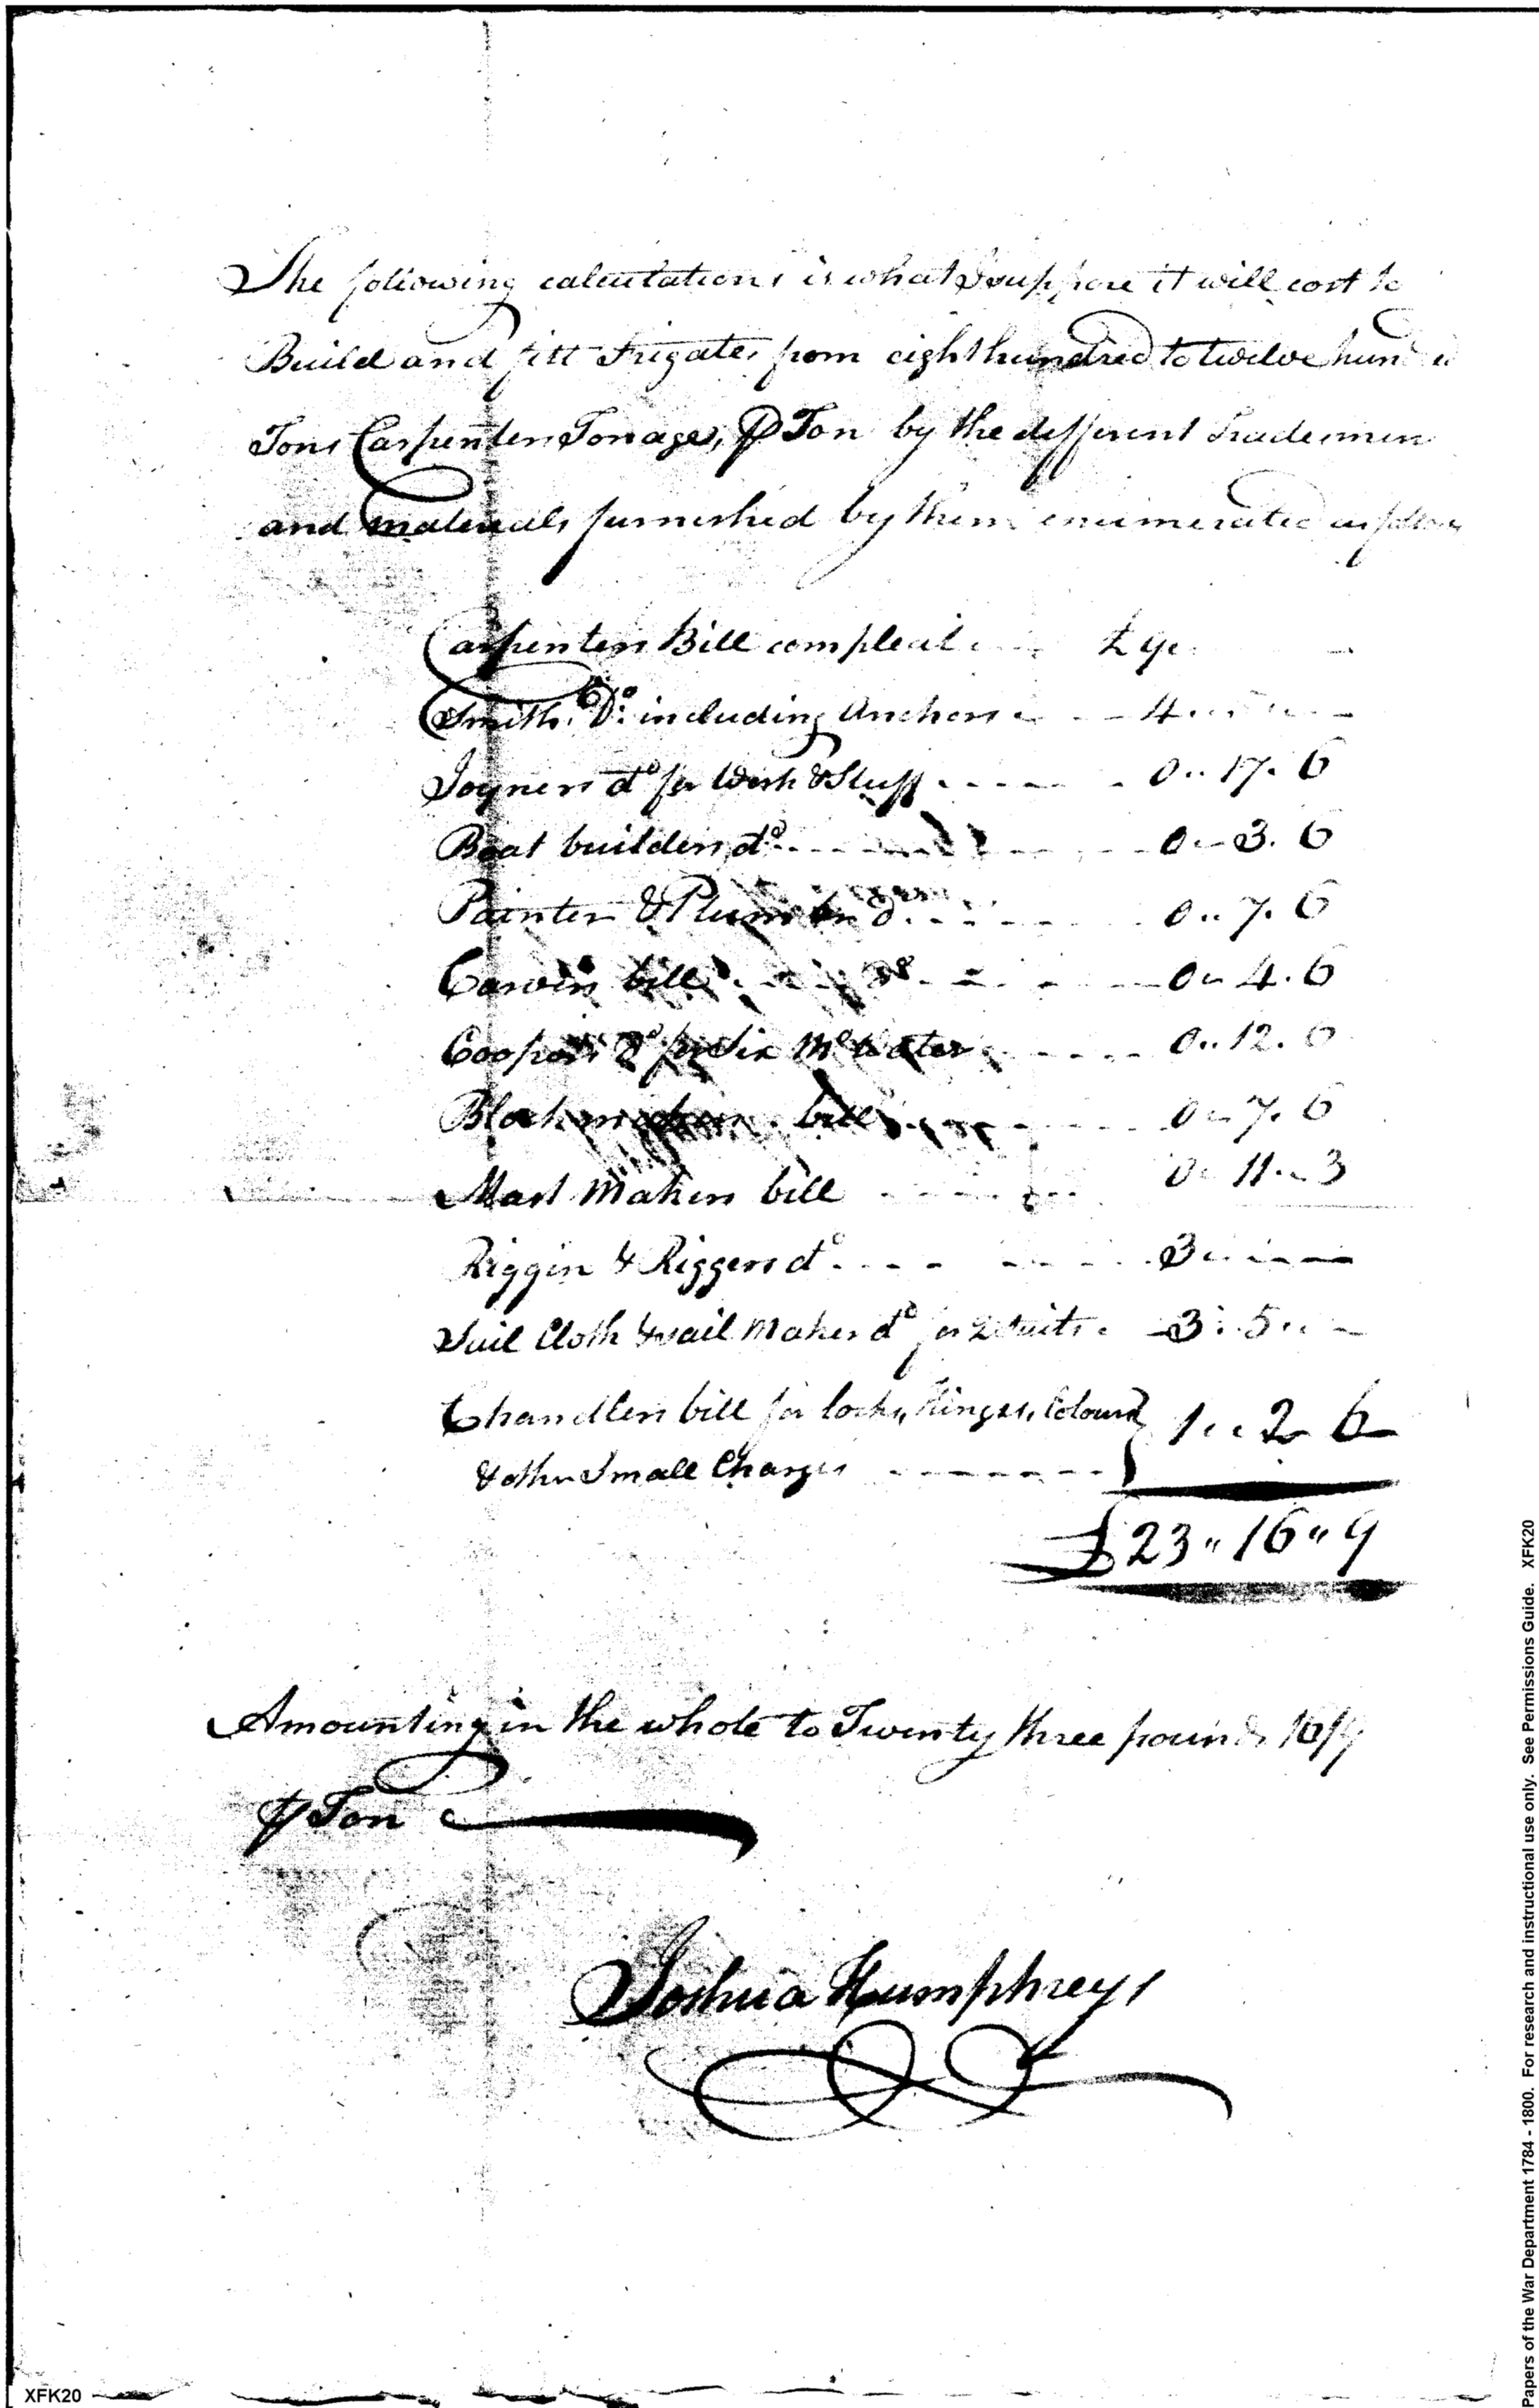 The following calculations is what I suppose it will cost to
Build and fitt Frigates from eight hundred to twelve
Tons Carpenters Tonage, ⅌ Ton by the different Tradesmen
and materials furnished by them enumerated as follow
Carpenters Bill compleat £ 9
Smiths Do: including Anchors - - 4
Joyners do for Work & Stuff - - - - - 0 .. 17 . 6
Boat builders do - - - - - - - 0 .. 3 . 6
Painter & Plumbers do - - - - - 0 .. 7 . 6
Carvers bill - - - do - - - - - 0 .. 4 . 6
Coopers do for Six Mo Water - - - - 0 .. 12 . 0
Blockmakers bill - - - - - 0 .. 7 . 6
Mast Makers bill - - - - - 0 .. 11 .. 3
Riggin & Riggers do - - - - - - - 3 .. - -
Sail Cloth & sail Makers do for 2 suits - 3 .. 5 .. -
Chandlers bill for locks, Hinges, Colours
& other Small Charges - - - - - - - } 1 .. 2 6
£ 23 " 16 " 9
Amounting in the whole to Twenty three pounds 16/9
⅌ Ton
Joshua Humphreys
XFK20
Papers of the War Department 1784 - 1800. For research and instructional use only. See Permissions Guide. XFK20